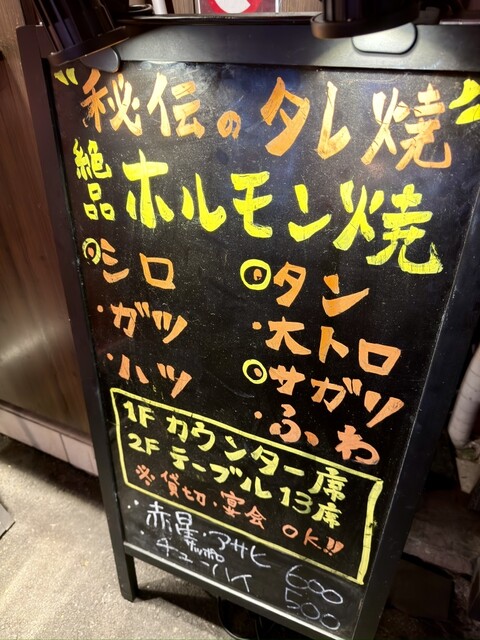 "秘伝のタレ焼"
絶品 ホルモン焼
◎シロ ◎タン
・ガツ ・大トロ
・ハツ ◎サガリ
・ふわ
1F カウンター席
2F テーブル13席
※貸切・宴会 OK!!
・赤星・アサヒ 600
・チューハイ 500